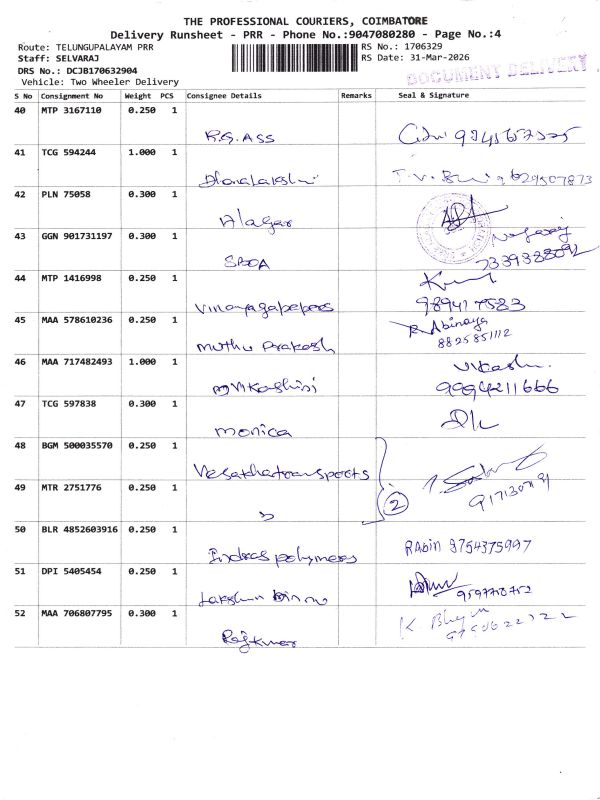 THE PROFESSIONAL COURIERS, COIMBATORE
Delivery Runsheet - PRR - Phone No.:9047080280 - Page No.:4
Route: TELUNGUPALAYAM PRR RS No.: 1706329
Staff: SELVARAJ RS Date: 31-Mar-2026
DRS No.: DCJB170632904 DOCUMENT DELIVERY
Vehicle: Two Wheeler Delivery
S No Consignment No Weight PCS Consignee Details Remarks Seal & Signature
40 MTP 3167110 0.250 1
R.G. ASS
41 TCG 594244 1.000 1
Dhanalakshmi T.V.
42 PLN 75058 0.300 1
Alagar
43 GGN 901731197 0.300 1 Nagaraj
SBOA 7339388092
44 MTP 1416998 0.250 1
Vinayagapepers 989417583
45 MAA 578610236 0.250 1 R. Abinaya
Muthu Prakash 8825851112
46 MAA 717482493 1.000 1 Vikash
9994211666
47 TCG 597838 0.300 1
Monica
48 BGM 500035570 0.250 1
Vesakhatransports
49 MTR 2751776 0.250 1 2
50 BLR 4852603916 0.250 1
Indras polymers RAbin 9754375997
51 DPI 5405454 0.250 1
9597710752
52 MAA 706807795 0.300 1 K
Rajkumar